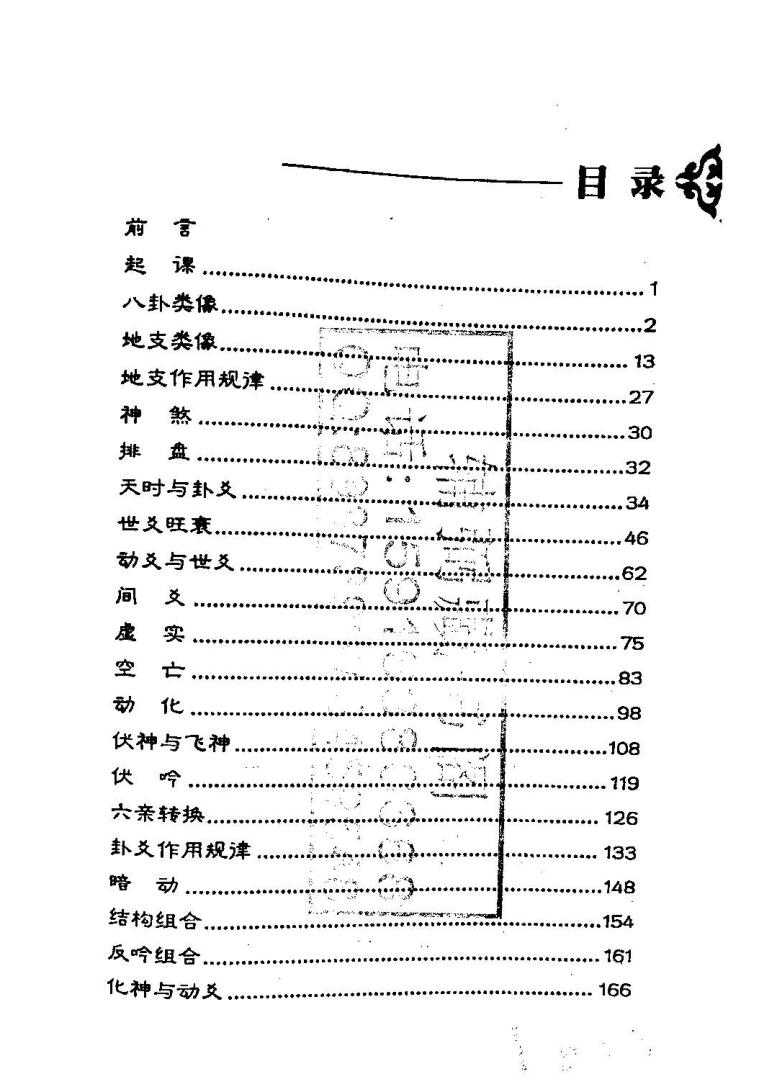 目录
前 言
起 课 1
八卦类像 2
地支类像 13
地支作用规律 27
神 煞 30
排 盘 32
天时与卦爻 34
世爻旺衰 46
动爻与世爻 62
间 爻 70
虚 实 75
空 亡 83
动 化 98
伏神与飞神 108
伏 吟 119
六亲转换 126
卦爻作用规律 133
暗 动 148
结构组合 154
反吟组合 161
化神与动爻 166